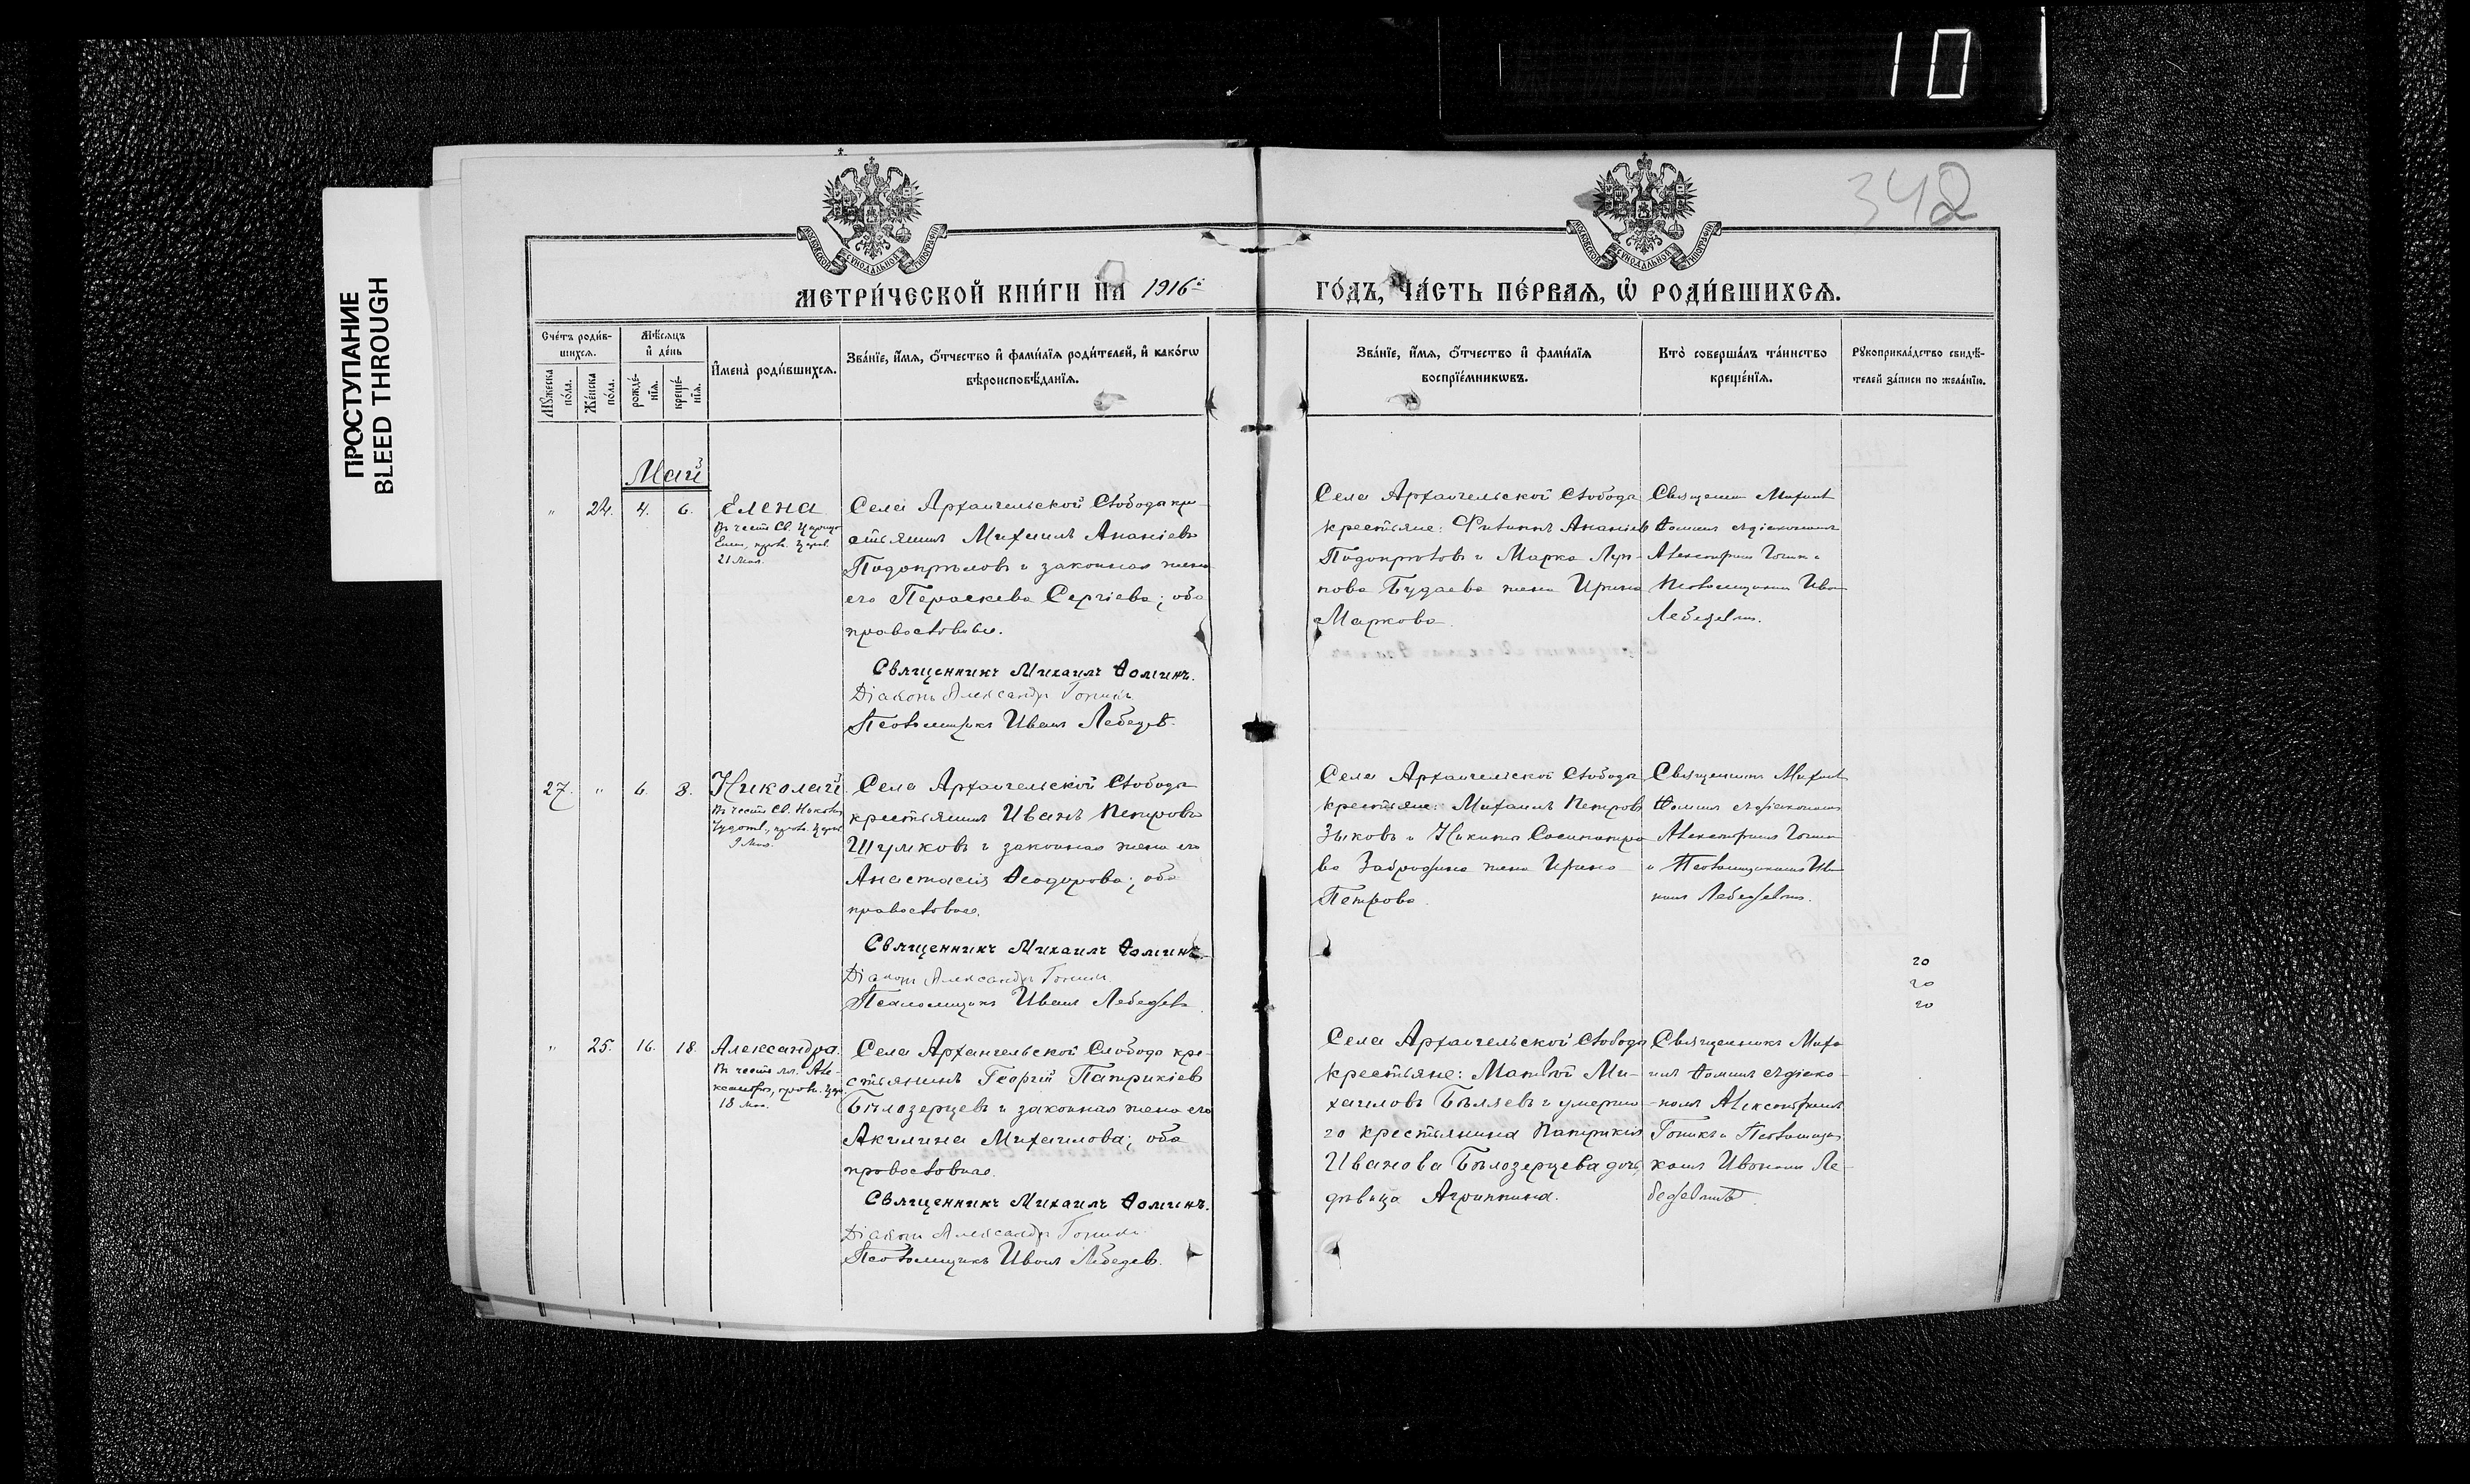 10
ПРОСТУПАНИЕ
BLEED THROUGH
342
МОСКОВСКОЙ СУНОДАЛЬНОЙ ТИПОГРАФІИ
МОСКОВСКОЙ СУНОДАЛЬНОЙ ТИПОГРАФІИ
МЕТРИ́ЧЕСКОЙ КНИ́ГИ НА 1916
ГО́ДЪ, ЧА́СТЬ ПЕ́РВАѦ, Ѡ҆ РОДИ́ВШИХСѦ.
Сче́тъ роди́в-
шихсѧ.
Мѣ́сѧцъ
и҆ де́нь
Мꙋ́жеска
по́ла.
Же́нска
по́ла.
рожде́-
нїѧ.
креще́-
нїѧ.
И҆мена̀ роди́вшихсѧ.
Зва́нїе, и҆́мѧ, ѻ҆́тчество и҆ фами́лїѧ роди́телей, и҆ како́гѡ
вѣроисповѣ́данїѧ.
Зва́нїе, и҆́мѧ, ѻ҆́тчество и҆ фами́лїѧ
воспрїе́мникѡвъ.
Кто̀ соверша́лъ та́инство
креще́нїѧ.
Рꙋкоприкла́дство свидѣ́-
телей за́писи по жела́нїю.
Май
" 24. 4. 6. Елена
Въ честь Св. Царицы
Елены, празн. Церк.
21 Мая.
Села Архангельской Слободы кре-
стьянинъ Михаилъ Ананіевъ
Подопрѣловъ и законная жена
его Параскева Сергіева; оба
православные.
Священникъ Михаилъ Ѳоминъ.
Діаконъ Александръ Гонинъ
Псаломщикъ Иванъ Лебедевъ.
Села Архангельской Слободы
крестьяне: Филиппъ Ананіевъ
Подопрѣловъ и Марка
Будаева жена Ирина
Маркова.
Священникъ Михаилъ
Ѳоминъ съ діакономъ
Александромъ и
Псаломщикомъ
Лебедевымъ.
27. " 6. 8. Николай.
Въ честь Св. Николая
Чудотв., празн. Церк.
9 Мая.
Села Архангельской Слободы
крестьянинъ Иванъ Петровъ
Шумковъ и законная жена его
Анастасія Ѳеодорова; оба
православные.
Священникъ Михаилъ Ѳоминъ.
Діаконъ Александръ Гонинъ
Псаломщикъ Иванъ Лебедевъ
Села Архангельской Слободы
крестьяне: Михаилъ Петровъ
Зыковъ и Никиты
Забродина жена Ирина
Петрова.
Священникъ Михаилъ
Ѳоминъ съ діакономъ
Александромъ
и Псаломщикомъ Ива-
номъ Лебедевымъ.
20
20
20
" 25. 16. 18. Александра.
Въ честь мч. Але-
ксандры, празн. Церк.
18 Мая.
Села Архангельской Слободы кре-
стьянинъ Георгій Патрикіевъ
Бѣлозерцевъ и законная жена его
Акилина Михаилова; оба
православные.
Священникъ Михаилъ Ѳоминъ.
Діаконъ Александръ Гонинъ
Псаломщикъ Иванъ Лебедевъ.
Села Архангельской Слободы
крестьяне: Матвѣй Ми-
хаиловъ Бѣляевъ и умерша-
го крестьянина Патрикія
Иванова Бѣлозерцева дочь,
дѣвица Агриппина.
Священникъ Миха-
илъ Ѳоминъ съ діако-
номъ Александромъ
и Псаломщи-
комъ Иваномъ Ле-
бедевымъ.